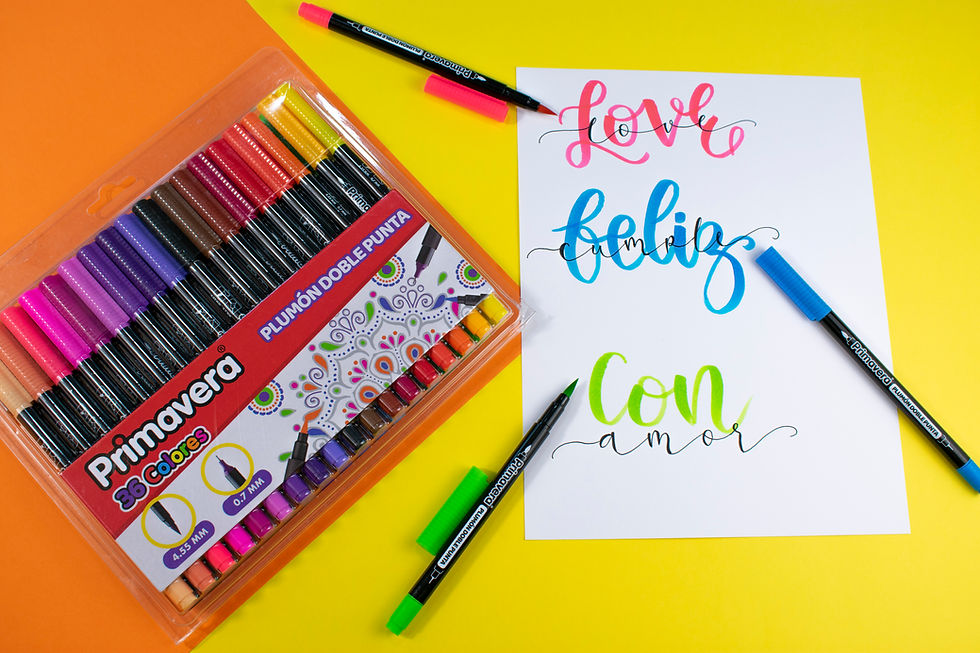 Primavera®
36 Colores
PLUMÓN DOBLE PUNTA
4.55 MM
0.7 MM
Primavera
PLUMÓN DOBLE PUNTA
Love
love
feliz
cumple
Con
amor
Primavera
PLUMÓN DOBLE PUNTA
Primavera
PLUMÓN DOBLE PUNTA